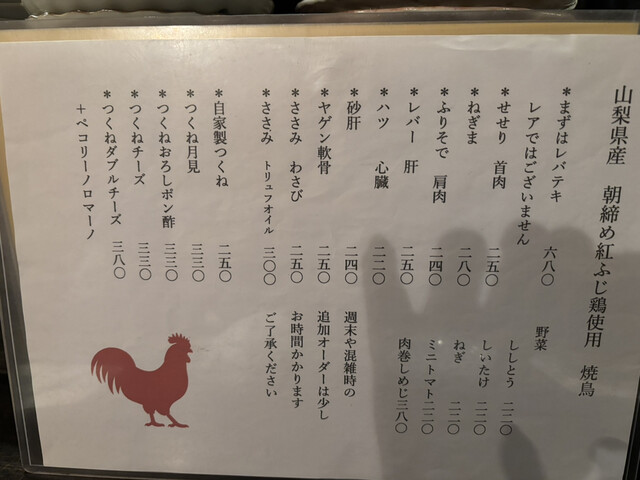 山梨県産 朝締め紅ふじ鶏使用 焼鳥
*まずはレバテキ 六八〇
レアではございません
*せせり 首肉 二五〇
*ねぎま 二八〇
*ふりそで 肩肉 二四〇
*レバー 肝 二五〇
*ハツ 心臓 二二〇
*砂肝 二四〇
*ヤゲン軟骨 二五〇
*ささみ わさび 二五〇
*ささみ トリュフオイル 三〇〇
*自家製つくね 二五〇
*つくね月見 三三〇
*つくねおろしポン酢 三三〇
*つくねチーズ 三三〇
*つくねダブルチーズ 三八〇
+ペコリーノロマーノ
野菜
ししとう 二二〇
しいたけ 二二〇
ねぎ 二二〇
ミニトマト 二二〇
肉巻しめじ 三八〇
週末や混雑時の
追加オーダーは少し
お時間かかります
ご了承ください